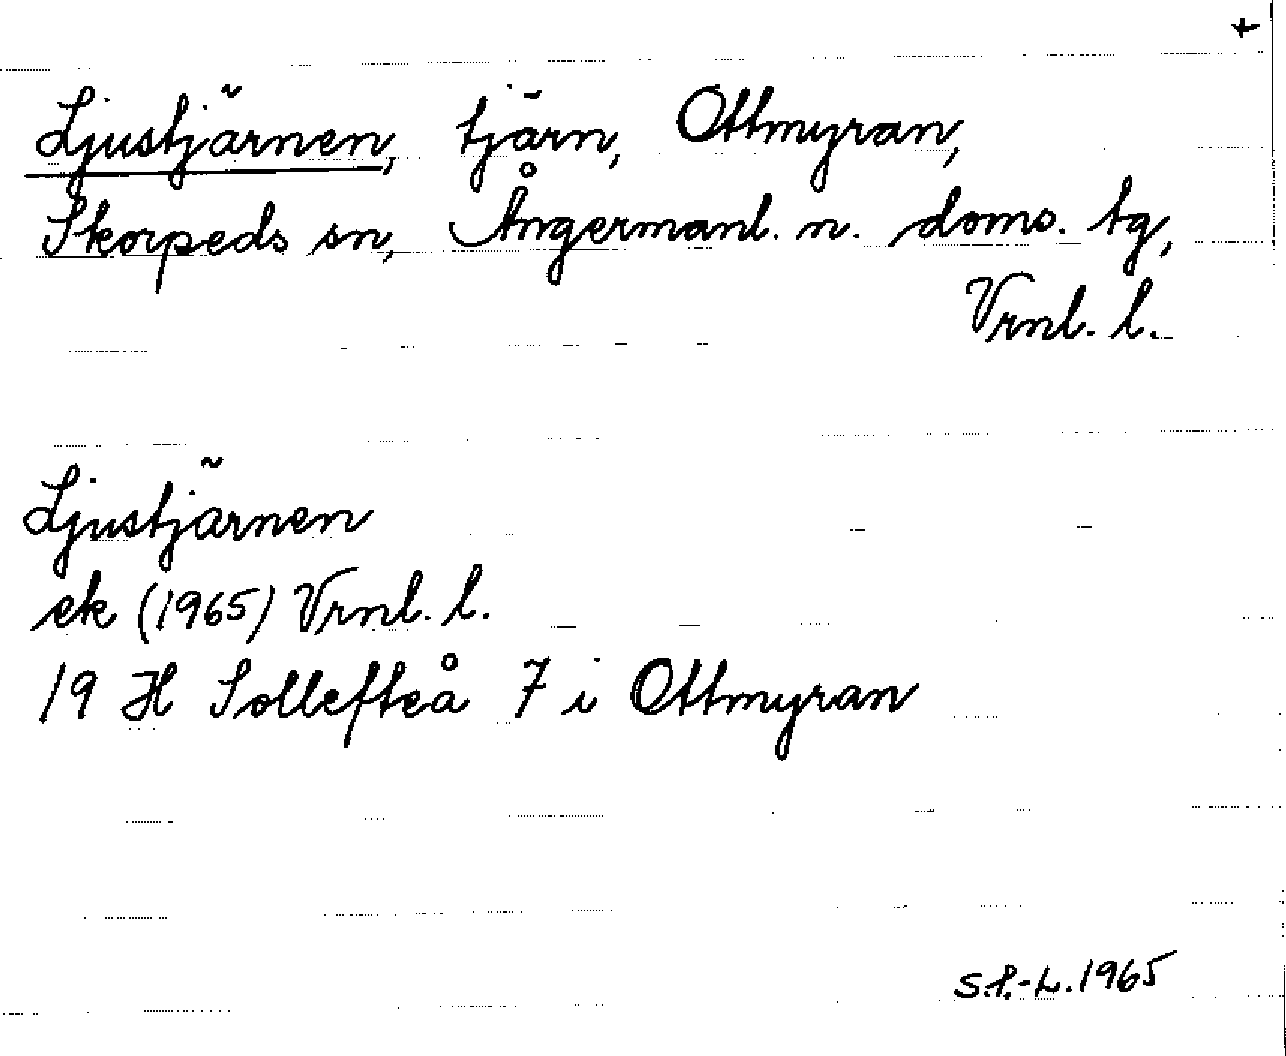 +
Ljustjärnen, tjärn, Ottmyran,
Skorpeds sn, Ångermanl. n. doms. tg,
Vrnl. l.
Ljustjärnen
ek (1965) Vrnl. l.
19 H Sollefteå 7 i Ottmyran
S.P.-L. 1965